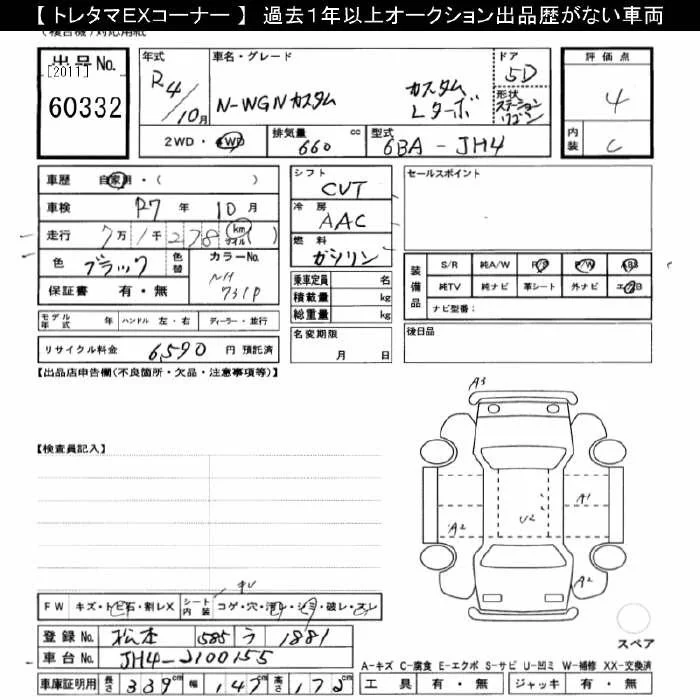 【 トレタマEXコーナー 】 過去1年以上オークション出品歴がない車両
出品No. [2011] 60332
年式 R4/10月
車名・グレード N-WGNカスタム カスタム Lターボ
ドア 5D
形状 ステーションワゴン
評価点 4
内装 C
2WD・4WD 排気量 660 cc 型式 6BA-JH4
車歴 自家用・( )
車検 R7年 10月
走行 7万1千278 km マイル ( )
色 ブラック 色替 カラーNo. NH731P
保証書 有・無
シフト CVT
冷房 AAC
燃料 ガソリン
乗車定員 名
積載量 kg
総重量 kg
名変期限 月 日
セールスポイント
装備品 S/R 純A/W P/S P/W ABS
純TV 純ナビ 革シート 外ナビ エアB
ナビ型番:
後日品
モデル年式 年 ハンドル 左・右 ディーラー・並行
リサイクル料金 6,590 円 預託済
【出品店申告欄(不良箇所・欠品・注意事項等)】
【検査員記入】
A3
A1
A2
U2
A2
スペア
FW キズ・トビ石・割レX シート内装 コゲ・穴・汚レ・シミ・破レ・スレ
登録No. 松本 585 ラ 1881
車台No. JH4-2100155
車庫証明用 長さ 339cm 幅 147cm 高さ 172cm
A-キズ C-腐食 E-エクボ S-サビ U-凹ミ W-補修 XX-交換済
工具 有・無 ジャッキ 有・無